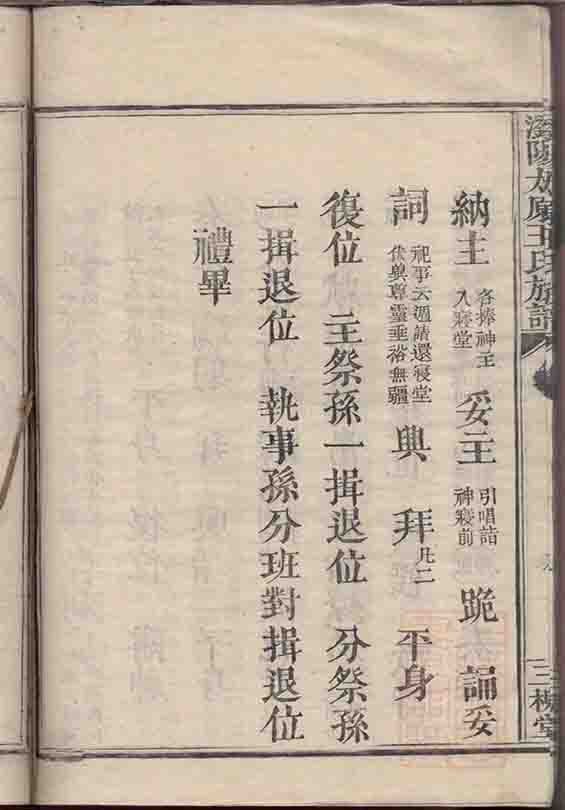 太原王氏族譜
三槐堂
納主 各捧神主入寢堂 妥主 引唱詣神寢前 跪 誦妥
詞 祀事云週請還寢堂伏輿尊靈垂裕無疆 興 拜 凡二 平身
復位 主祭孫一揖退位 分祭孫
一揖退位 執事孫分班對揖退位
禮畢